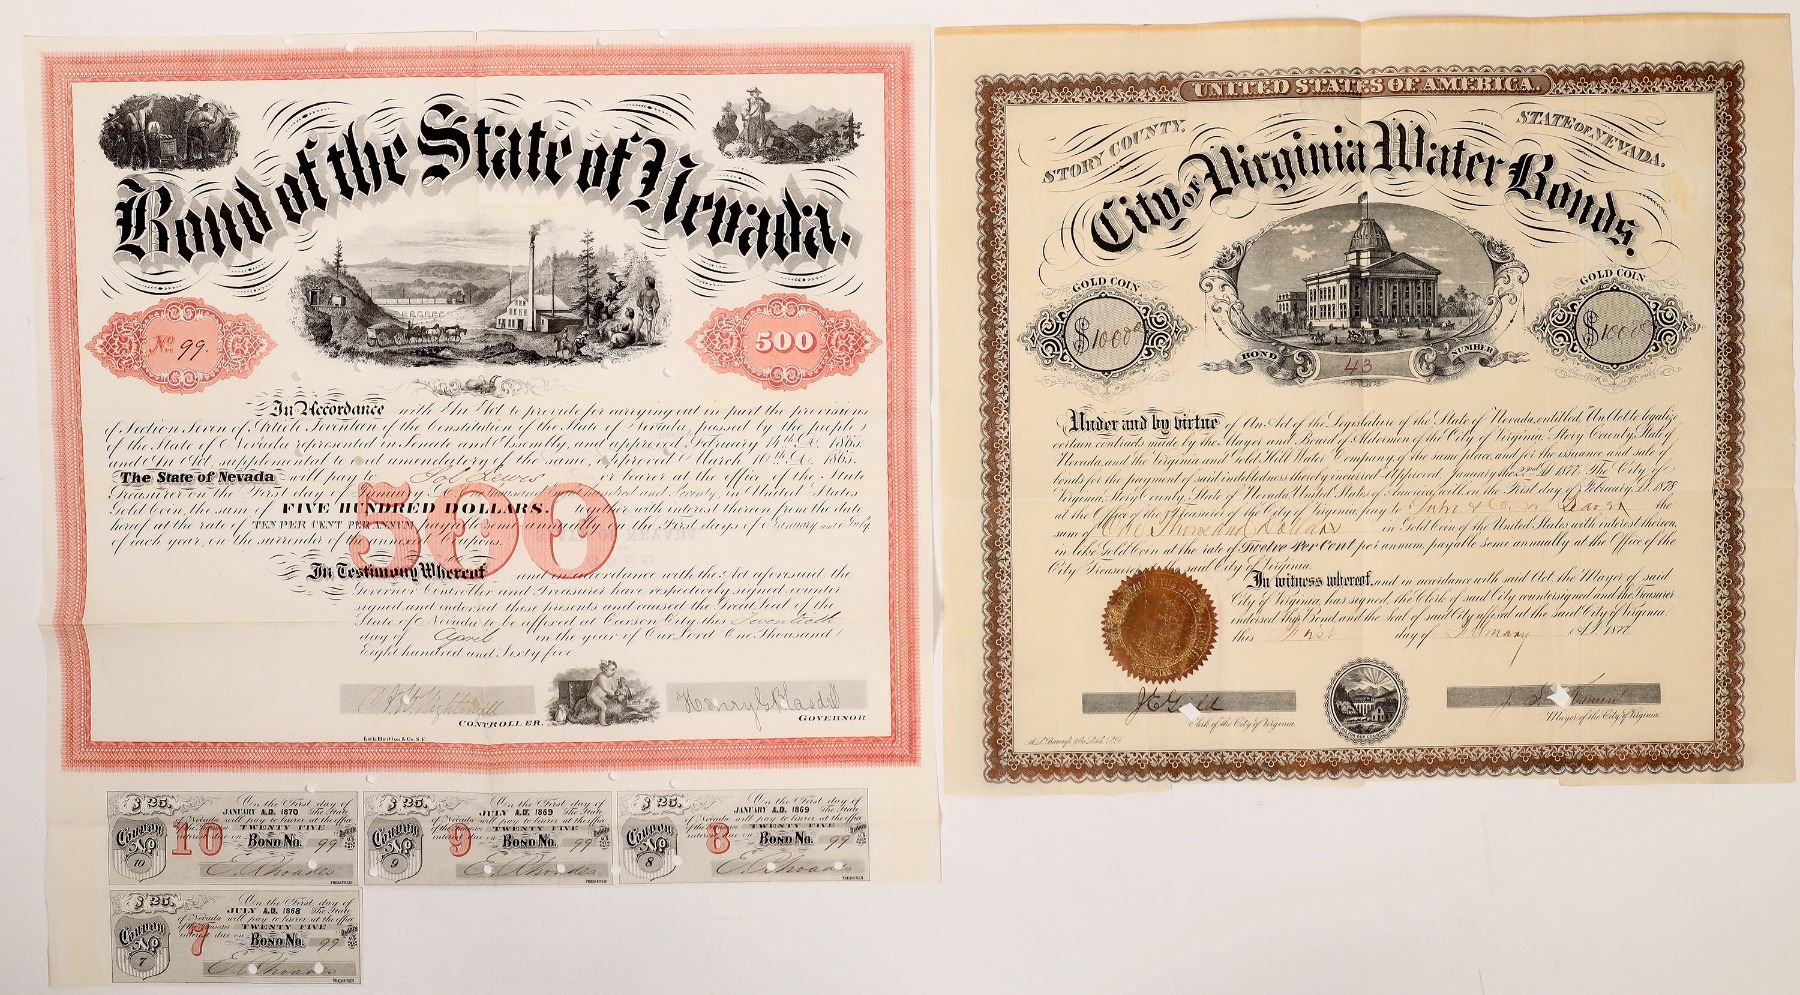 Bond of the State of Nevada.
No. 99.
500
In Accordance with An Act to provide for carrying out in part the provisions
of Section Seven of Article Seventan of the Constitution of the State of Nevada, passed by the people
of the State of Nevada represented in Senate and Assembly, and approved February 14th A.D. 1865.
and An Act, supplemental to and amendatory of the same, approved March 10th A.D. 1865.
The State of Nevada will pay to Sol Lewis or bearer at the office of the State
Treasurer on the First day of January Thousand Hundred and Seventy, in United States
Gold Coin, the sum of FIVE HUNDRED DOLLARS. together with interest thereon from the date
hereof at the rate of TEN PER CENT PER ANNUM, payable semi annually on the First days of January and July,
of each year, on the surrender of the annexed Coupons.
500
In Testimony Whereof and in accordance with the Act aforesaid the
Governor Controller and Treasurer have respectively signed counter
signed and endorsed these presents and caused the Great Seal of the
State of Nevada to be affixed at Carson City this Seventeeth
day of April in the year of Our Lord One Thousand
Eight hundred and Sixty five
CONTROLLER.
Henry G. Blasdel
GOVERNOR
Lith. Britton & Co. S.F.
$25. On the First day of
JANUARY A.D. 1870 The State
of Nevada will pay to bearer at the office
of the Treasurer TWENTY FIVE Dollars
interest due on BOND No. 99
Coupon No. 10
10
E. Rhoades
TREASURER
$25. On the First day of
JULY A.D. 1869 The State
of Nevada will pay to bearer at the office
of the Treasurer TWENTY FIVE Dollars
interest due on BOND No. 99
Coupon No. 9
9
E. Rhoades
TREASURER
$25. On the First day of
JANUARY A.D. 1869 The State
of Nevada will pay to bearer at the office
of the Treasurer TWENTY FIVE Dollars
interest due on BOND No. 99
Coupon No. 8
8
E. Rhoades
TREASURER
$25. On the First day of
JULY A.D. 1868 The State
of Nevada will pay to bearer at the office
of the Treasurer TWENTY FIVE Dollars
interest due on BOND No. 99
Coupon No. 7
7
E. Rhoades
TREASURER
UNITED STATES OF AMERICA.
STORY COUNTY. STATE OF NEVADA.
City of Virginia Water Bonds.
GOLD COIN GOLD COIN
$1000.00 $1000.00
BOND NUMBER
43
Under and by virtue of An Act of the Legislature of the State of Nevada, entitled "An Act to legalize
certain contracts made by the Mayor and Board of Aldermen of the City of Virginia, Story County, State of
Nevada, and the Virginia and Gold Hill Water Company, of the same place, and for the issuance and sale of
bonds for the payment of said indebtedness thereby incurred. Approved, January the 22nd A.D. 1877. The City of
Virginia, Story County, State of Nevada, United States of America, will, on the First day of February, A.D. 1878
at the Office of the Treasurer of the City of Virginia, pay to or Bearer the
sum of One Thousand Dollars in Gold Coin of the United States with interest thereon,
in like Gold Coin at the rate of Twelve Per Cent per annum, payable semi annually at the Office of the
City Treasurer of the said City of Virginia.
In witness whereof, and in accordance with said Act, the Mayor of said
City of Virginia, has signed, the Clerk of said City countersigned and the Treasurer
indorsed this Bond, and the seal of said City affixed at the said City of Virginia.
this First day of February A.D. 1877.
Clerk of the City of Virginia.
Mayor of the City of Virginia.